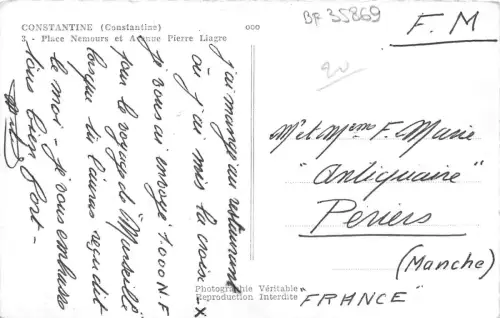 CONSTANTINE (Constantine)
3 - Place Nemours et Avenue Pierre Liagre
ooo
BF 35869
20
F.M
j'ai mangé au restaurant
où j'ai mis la croix - X
je vous ai envoyé 1.000 N.F
pour le voyage de "Marseille"
lorsque tu l'auras reçu dit
le moi - je vous embrasse
tous bien fort -
Mr et Mme F. Marie
"Antiquaire"
Periers
(Manche)
"FRANCE"
Photographie Véritable
Reproduction Interdite